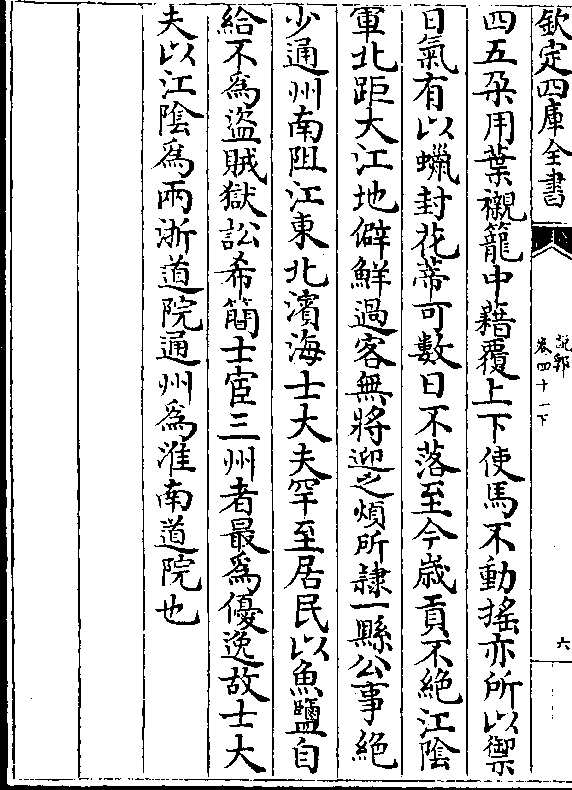 欽定四庫全書
說郛
卷四十一下
六
四五朶用葉襯籠中藉覆上下使馬不動搖亦所以禦
日氣有以蠟封花蒂可數日不落至今歲貢不絕江隂
軍北距大江地僻鮮過客無將迎之煩所隷一縣公事絕
少通州南阻江東北濱海士大夫罕至居民以魚鹽自
給不為盜賊獄訟希簡士宦三州者最為優逸故士大
夫以江隂為兩浙道院通州為淮南道院也